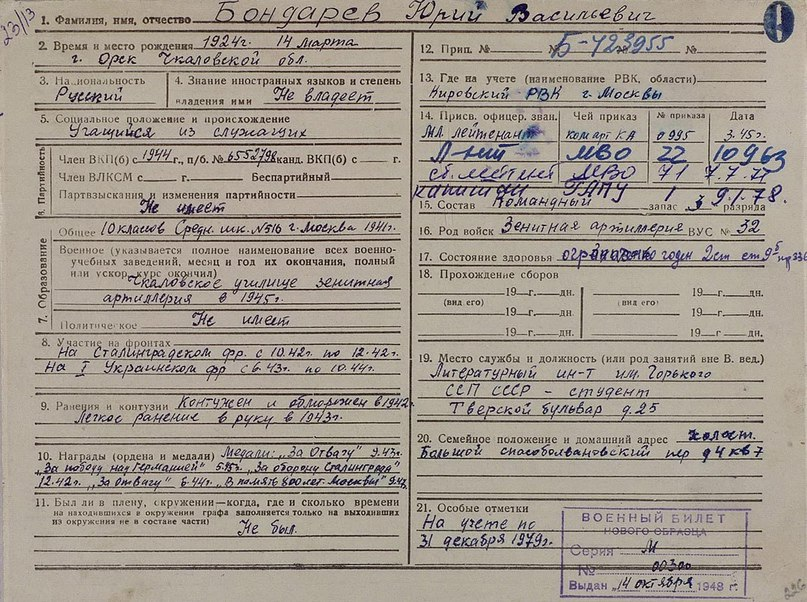 23/13
1. Фамилия, имя, отчество Бондарев Юрий Васильевич
2. Время и место рождения 1924г. 14 марта
г. Орск Чкаловской обл.
3. Национальность
Русский
4. Знание иностранных языков и степень
владения ими Не владеет
5. Социальное положение и происхождение
Учащийся из служащих
6. Партийность
Член ВКП(б) с 1944 г., п/б. № 6552798 канд. ВКП(б) с — г.
Член ВЛКСМ с — г. Беспартийный
Партвзыскания и изменения партийности
Не имеет
7. Образование
Общее 10 класов Средн. шк. №516 г. Москва 1941г.
Военное (указывается полное наименование всех военно-
учебных заведений, месяц и год их окончания, полный
или ускор. курс окончил)
Чкаловское училище зенитная
артиллерия в 1945г.
Политическое Не имеет
8. Участие на фронтах
На Сталинградском фр. с 10.42г. по 12.42г.
На I Украинском фр с 6.43г. по 10.44г.
9. Ранения и контузии Контужен и обморожен в 1942г
Легкое ранение в руку в 1943г.
10. Награды (ордена и медали) Медали: „За Отвагу" 9.43г.
„За победу над Германией" 5.45г. „За оборону Сталинграда"
12.42г. „За отвагу" 6.44г. „В память 800 лет Москвы" 9.47
11. Был ли в плену, окружении—когда, где и сколько времени
на находившихся в окружении графа заполняется только на выходивших
из окружения не в составе части)
Не был.
12. Прип. № Б-723955 № №
13. Где на учете (наименование РВК, области)
Кировский РВК г. Москвы
14. Присв. офицер. зван. Чей приказ № приказа Дата
Мл. лейтенант ком арт КА 0995 3.45г.
Л-нт МВО 22 10 9 63
ст. лейтен МВО 71 7.7.71
капитан ГАПУ 1 9.1.78.
15. Состав Командный запас 3 разряда
16. Род войск Зенитная артиллерия ВУС № 32
17. Состояние здоровья годен 2 ст
18. Прохождение сборов
19 — г. — дн. 19 — г. — дн.
(вид его) 19 — г. — дн. (вид его) 19 — г. — дн.
19 — г. — дн. 19 — г. — дн.
19. Место службы и должность (или род занятий вне В. вед.)
Литературный ин-т им. Горького
ССП СССР – студент
Тверской бульвар д. 25
20. Семейное положение и домашний адрес холост.
Большой пер д 4 кв 7
21. Особые отметки
На учете по
31 декабря 1979г.
ВОЕННЫЙ БИЛЕТ
НОВОГО ОБРАЗЦА
Серия М
№
Выдан „14 октября 1948 г.
226